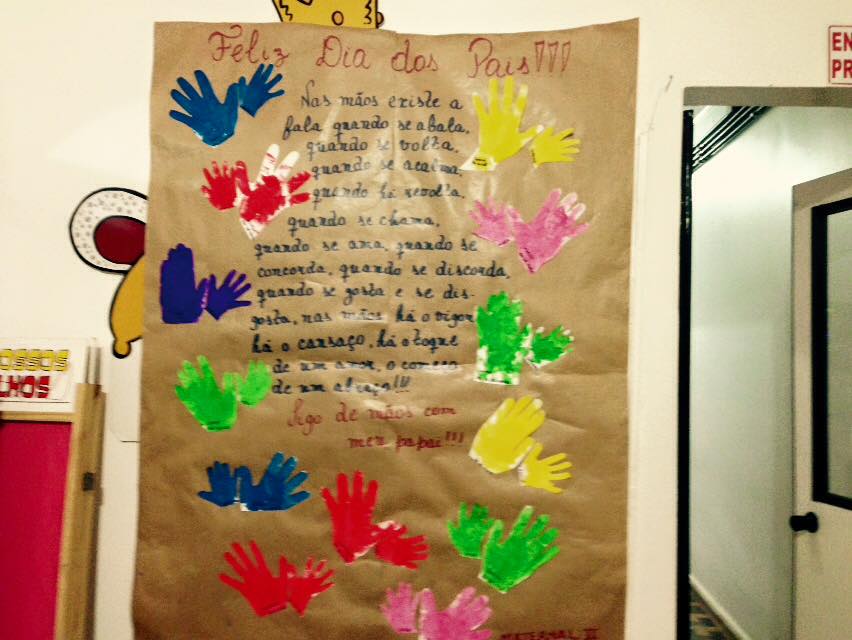 Feliz Dia dos Pais!!!
Nas mãos existe a
fala quando se abala,
quando se volta,
quando se acalma,
quando há revolta.
quando se chama,
quando se ama, quando se
concorda, quando se discorda,
quando se gosta e se dis-
gosta, nas mãos há o vigor
há o cansaço, há o toque
de um amor, o começo
de um abraço!!!
Sigo de mãos com
meu papai!!!
MATERNAL II
OSSOS
LHOS
EN
PR